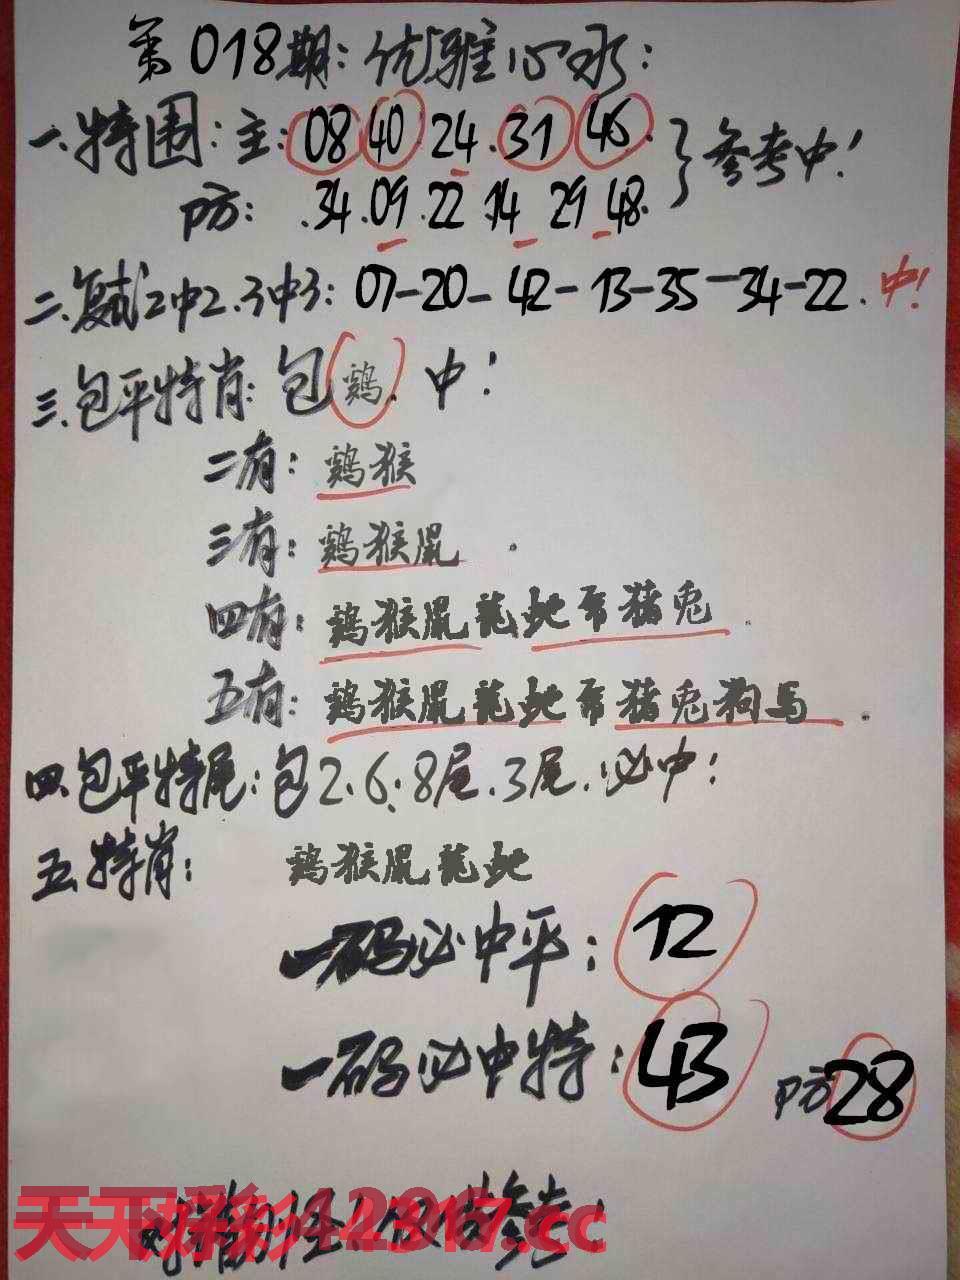 第018期:优雅心水:
一.特围:主:08 40 24.31 46.}参考中!
防: .34.09.22 14 29 48.
二.复式2中2.3中3: 07-20-42-13-35-34-22.中!
三.包平特肖:包鷄.中!
二有:鷄猴
三有:鷄猴鼠.
四有:鷄猴鼠龍蛇 猪兔.
五有:鷄猴鼠龍蛇 猪兔狗马.
四.包平特尾:包2.6.8尾.3尾.必中!
五.特肖: 鷄猴鼠龍蛇
一码必中平:12
一码必中特:43 防28
天下彩 .cc